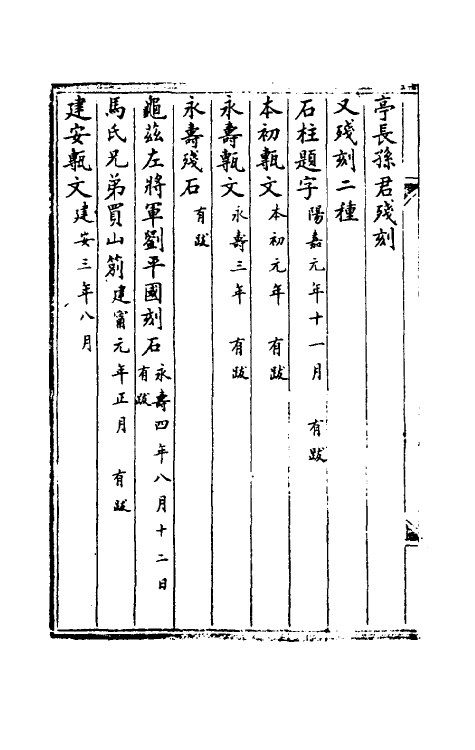 亭長孫君殘刻
又殘刻二種
石柱題字 陽嘉元年十一月 有跋
本初甎文 本初元年 有跋
永壽甎文 永壽三年 有跋
永壽殘石 有跋
龜茲左將軍劉平國刻石 永壽四年八月十二日 有跋
馬氏兄弟買山莂 建甯元年正月 有跋
建安甎文 建安三年八月